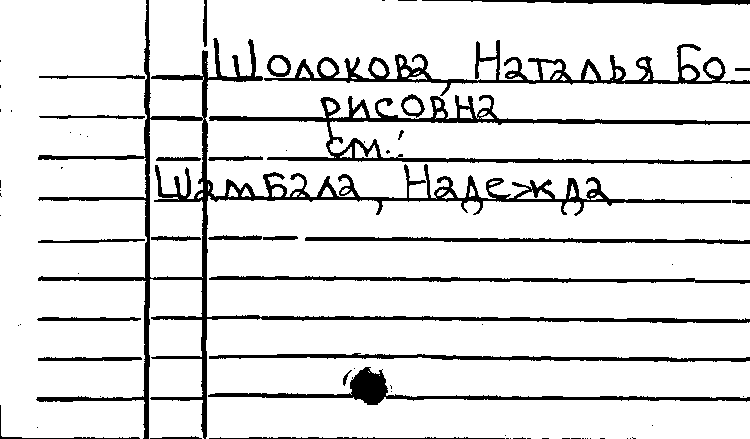 Шолокова, Наталья Бо-
рисовна
см.:
Шамбала, Надежда